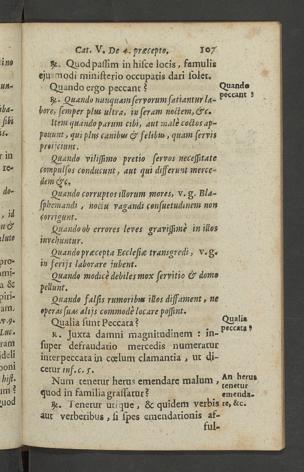 Cat. V. De 4. præcepto. 107
℞. Quod passim in hisce locis, famulis
ejusmodi ministerio occupatis dari solet.
Quando ergo peccant ?
Quando
peccant ?
℞. Quando nunquam servorum satiantur la-
bore, semper plus ultra, in seram noctem, &c.
Item quando parum cibi, aut malè coctos ap-
ponunt, qui plus canibus & felibus, quam servis
projiciunt.
Quando vilissimo pretio servos necessitate
compulsos conducunt, aut qui differunt merce-
dem &c.
Quando corruptos illorum mores, v. g. Bla-
sphemandi , noctu vagandi consuetudinem non
corrigunt.
Quando ob errores leves gravissimè in illos
invehuntur.
Quando præcepta Ecclesiæ transgredi, v. g.
in ferijs laborare jubent.
Quando modicè debiles mox servitio & domo
pellunt.
Quando falsis rumoribus illos diffament, ne
operas suas aliis commodè locare possint.
Qualia sunt Peccata ?
Qualia
peccata ?
℞. Juxta damni magnitudinem : in-
super defraudatio mercedis numeratur
inter peccata in cœlum clamantia , ut di-
cetur inf. c. 5.
Num tenetur herus emendare malum ,
quod in familia grassatur ?
An herus
tenetur
emenda-
re, &c.
℞. Tenetur utique, & quidem verbis
aut verberibus, si spes emendationis af-
ful-